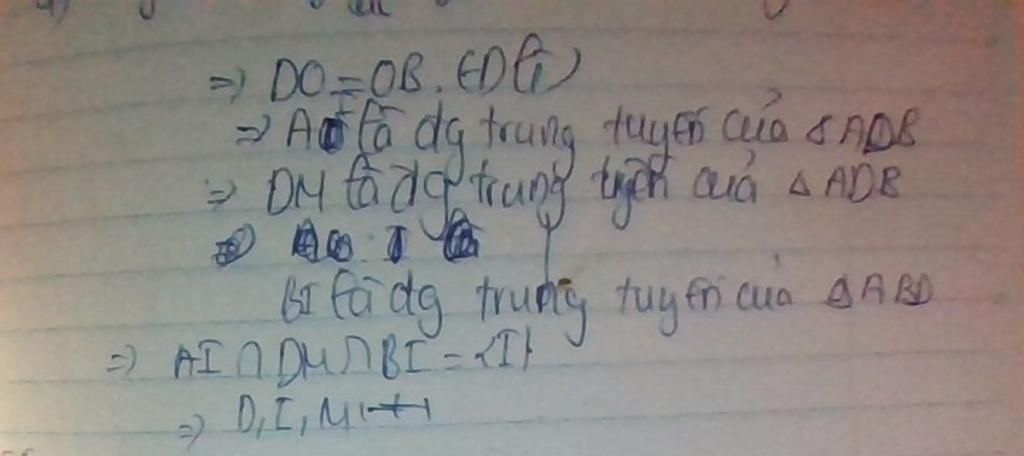 => DO = OB.
=> là đg trung tuyến của △ADB
=> DM là đg trung tuyến của △ADB
BI là đg trung tuyến của △ABD
=> AI ∩ DM ∩ BI = {I}
=> D, I, M